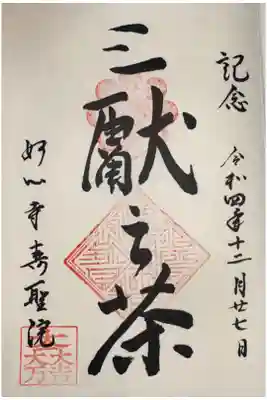 記念
令和四年十二月廿七日
三獻之茶
妙心寺寿聖院